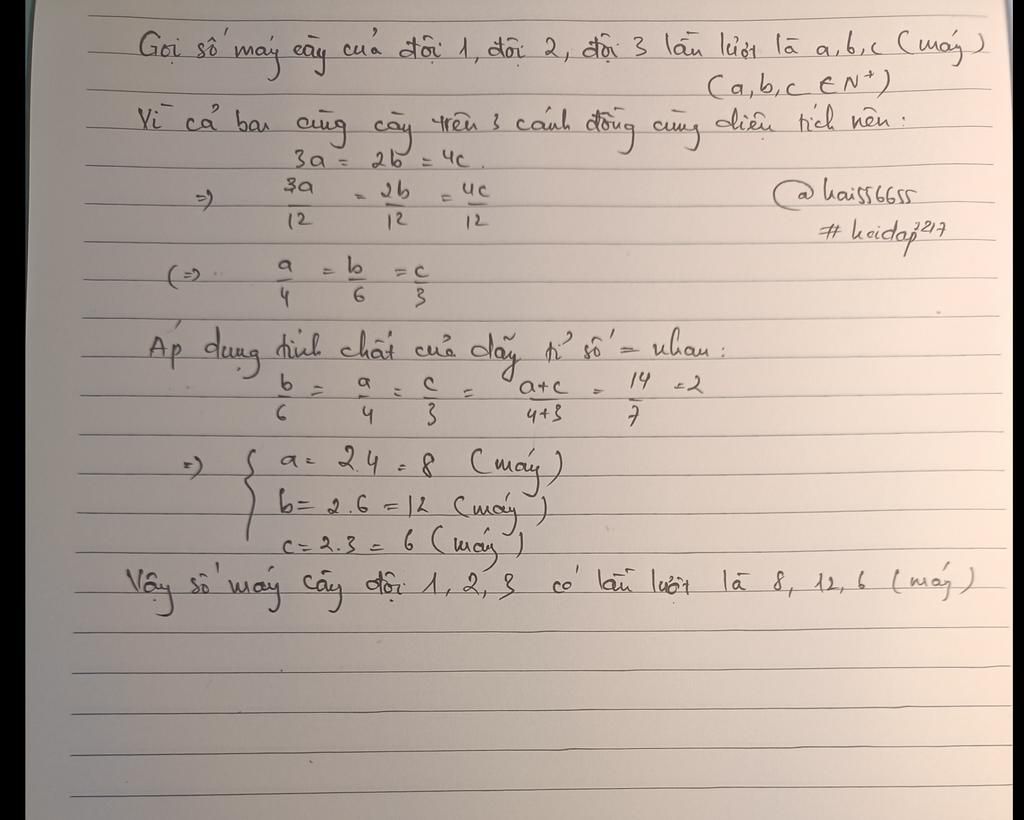 Gọi số máy cày của đội 1, đội 2, đội 3 lần lượt là a, b, c (máy)
(a, b, c ∈ N⁺)
Vì cả ba cùng cày trên 3 cánh đồng cùng diện tích nên:
3a = 2b = 4c.
=> 3a/12 = 2b/12 = 4c/12
@hai556655
# hoidap247
(=> a/4 = b/6 = c/3
Áp dụng tính chất của dãy tỉ số = nhau:
b/6 = a/4 = c/3 = a+c/4+3 = 14/7 = 2
=> { a = 2.4 = 8 (máy)
b = 2.6 = 12 (máy)
c = 2.3 = 6 (máy)
Vậy số máy cày đội 1, 2, 3 có lần lượt là 8, 12, 6 (máy)